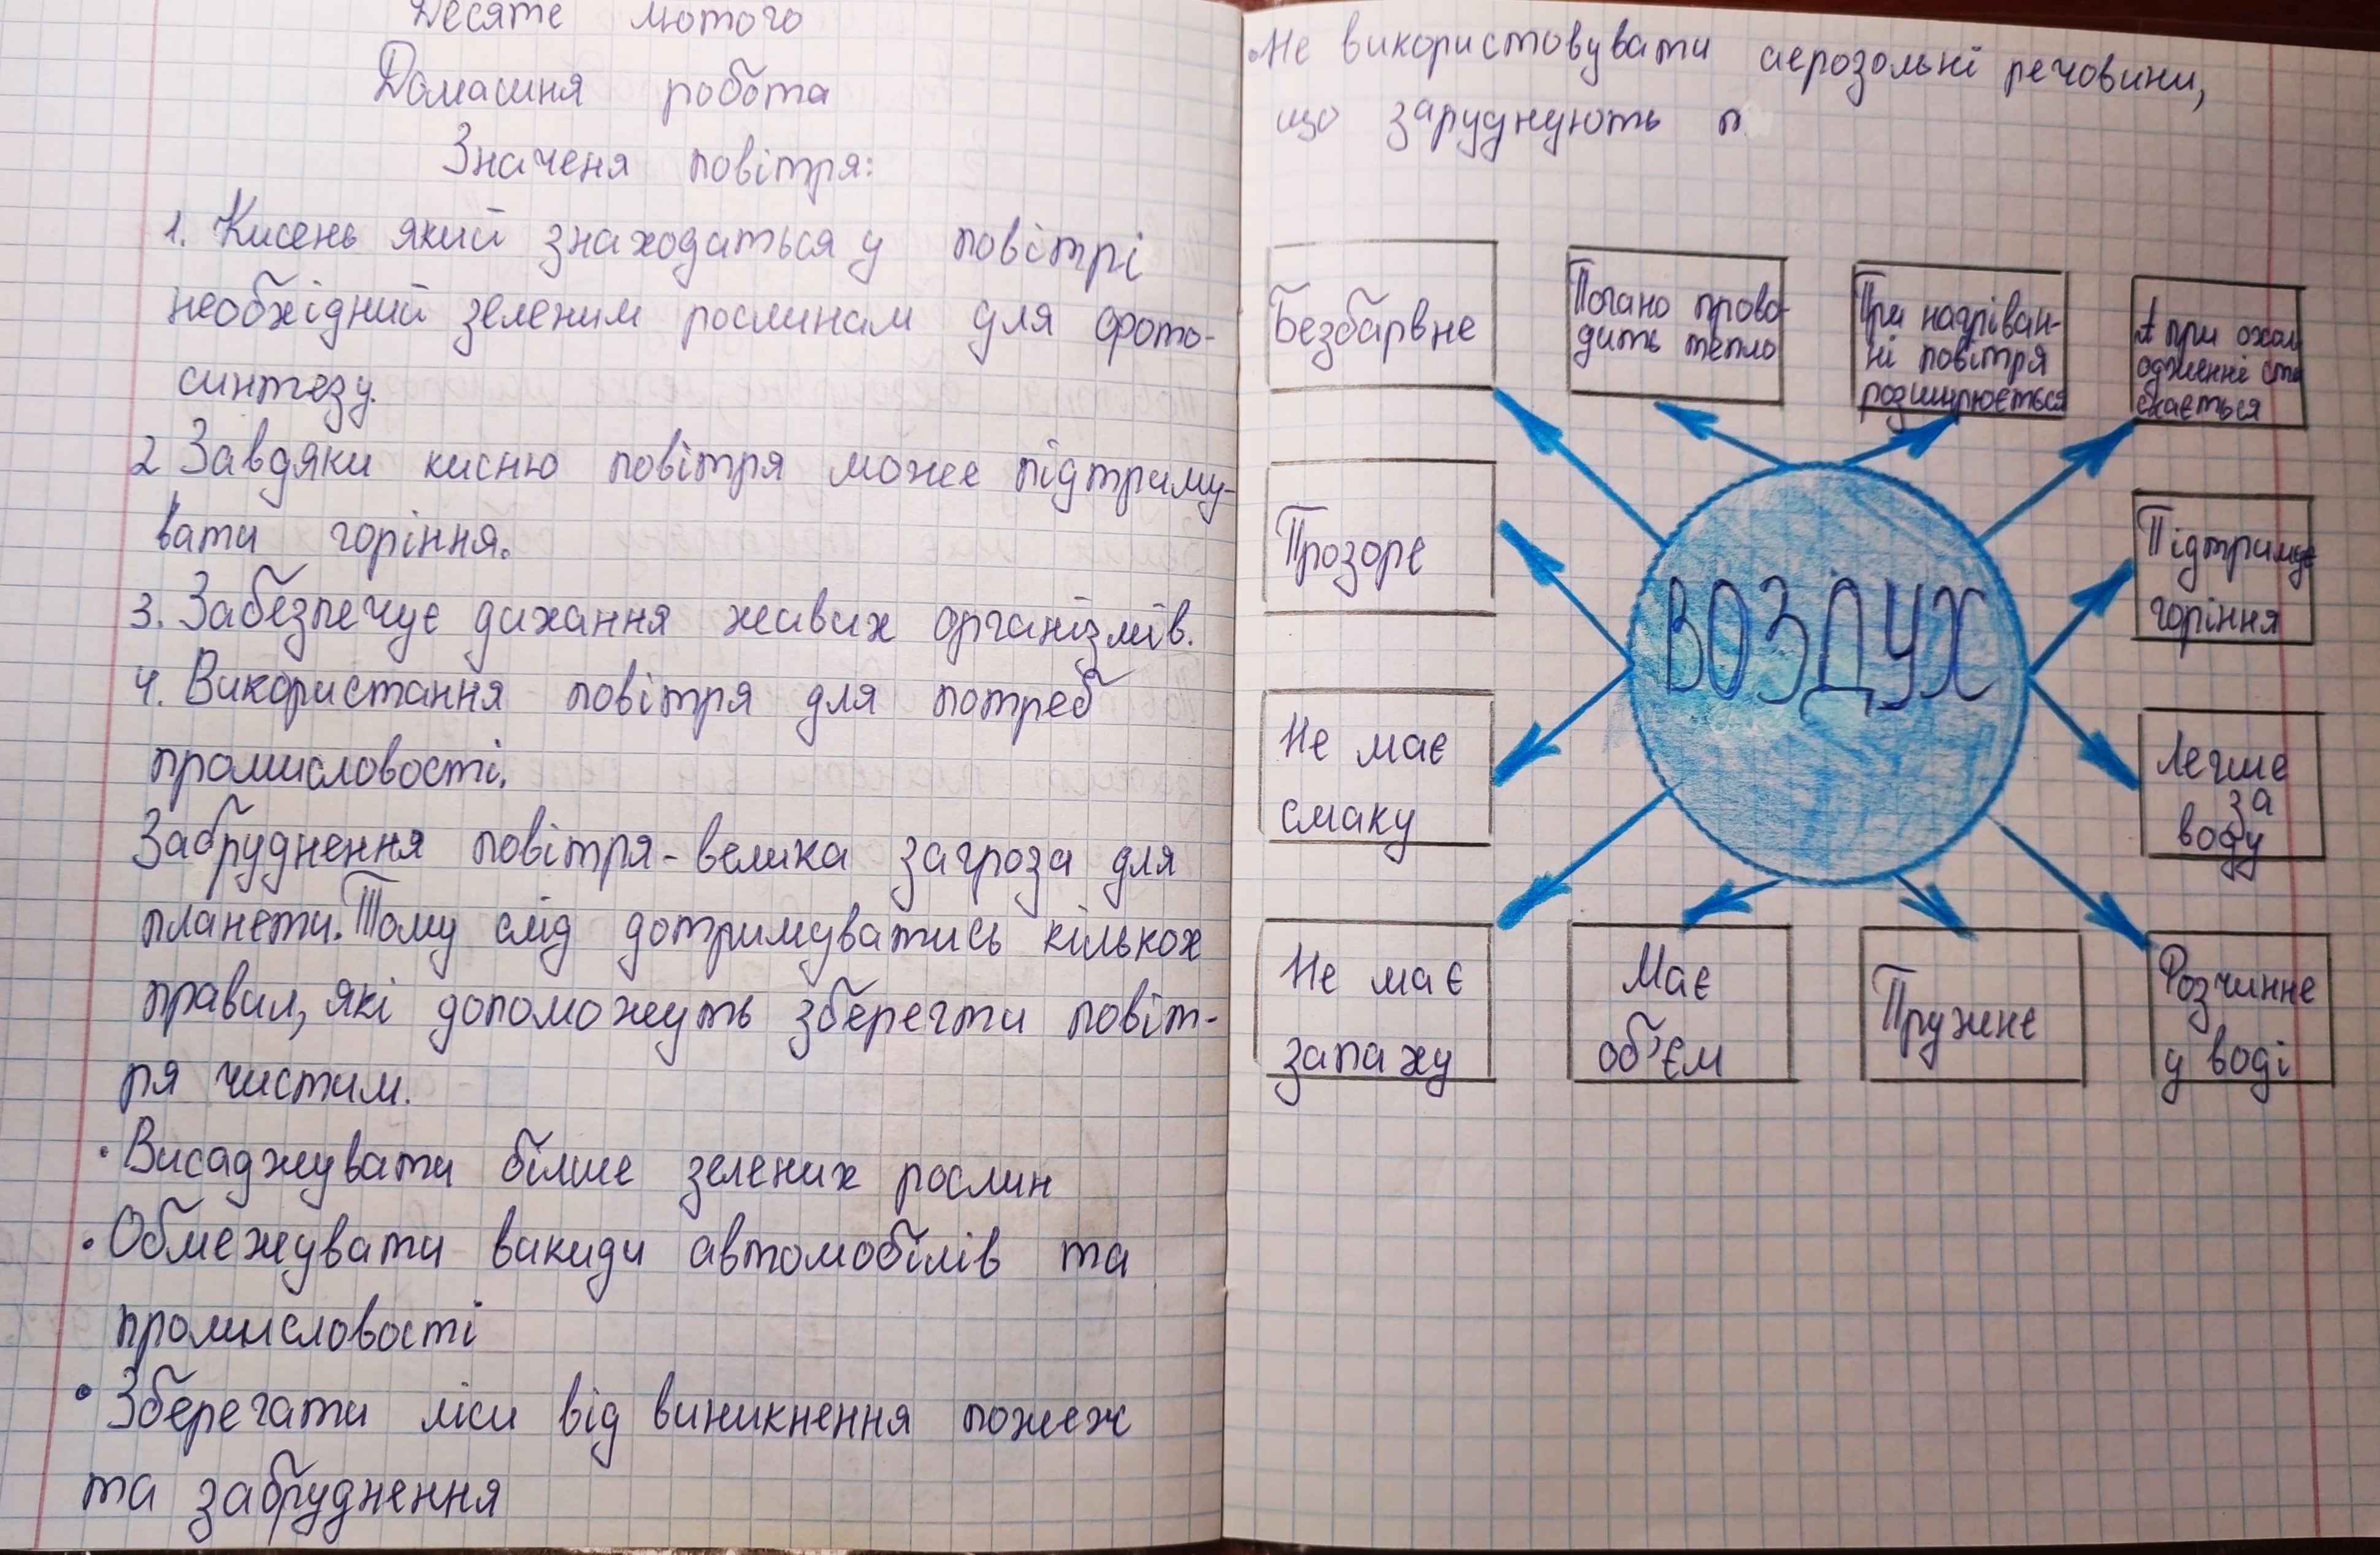 Десяте лютого
Домашня робота
Значеня повітря:
1. Кисень який знаходаться у повітрі
необхідний зеленим рослинам для фото-
синтезу.
2 Завдяки кисню повітря може підтриму-
вати горіння.
3. Забезпечує дихання живих організмів.
4. Використання повітря для потреб
промисловості.
Забруднення повітря - велика загроза для
планети. Тому слід дотримуватись кількох
правил, які допоможуть зберегти повіт-
ря чистим.
· Висаджувати білше зелених рослин
· Обмежувати викиди автомобілів та
промисловості
· Зберегати ліси від виникнення пожеж
та забруднення
· Не використовувати аерозольні речовини,
що заруднують п
Безбарвне
Погано прово-
дить тепло
При нагріван-
ні повітря
розширюється
А при охол
одженні сти
скається
Прозоре
ВОЗДУХ
Підтримує
горіння
Не має
смаку
Легше
за
воду
Не має
запаху
Має
об'єм
Пружне
Розчинне
у воді